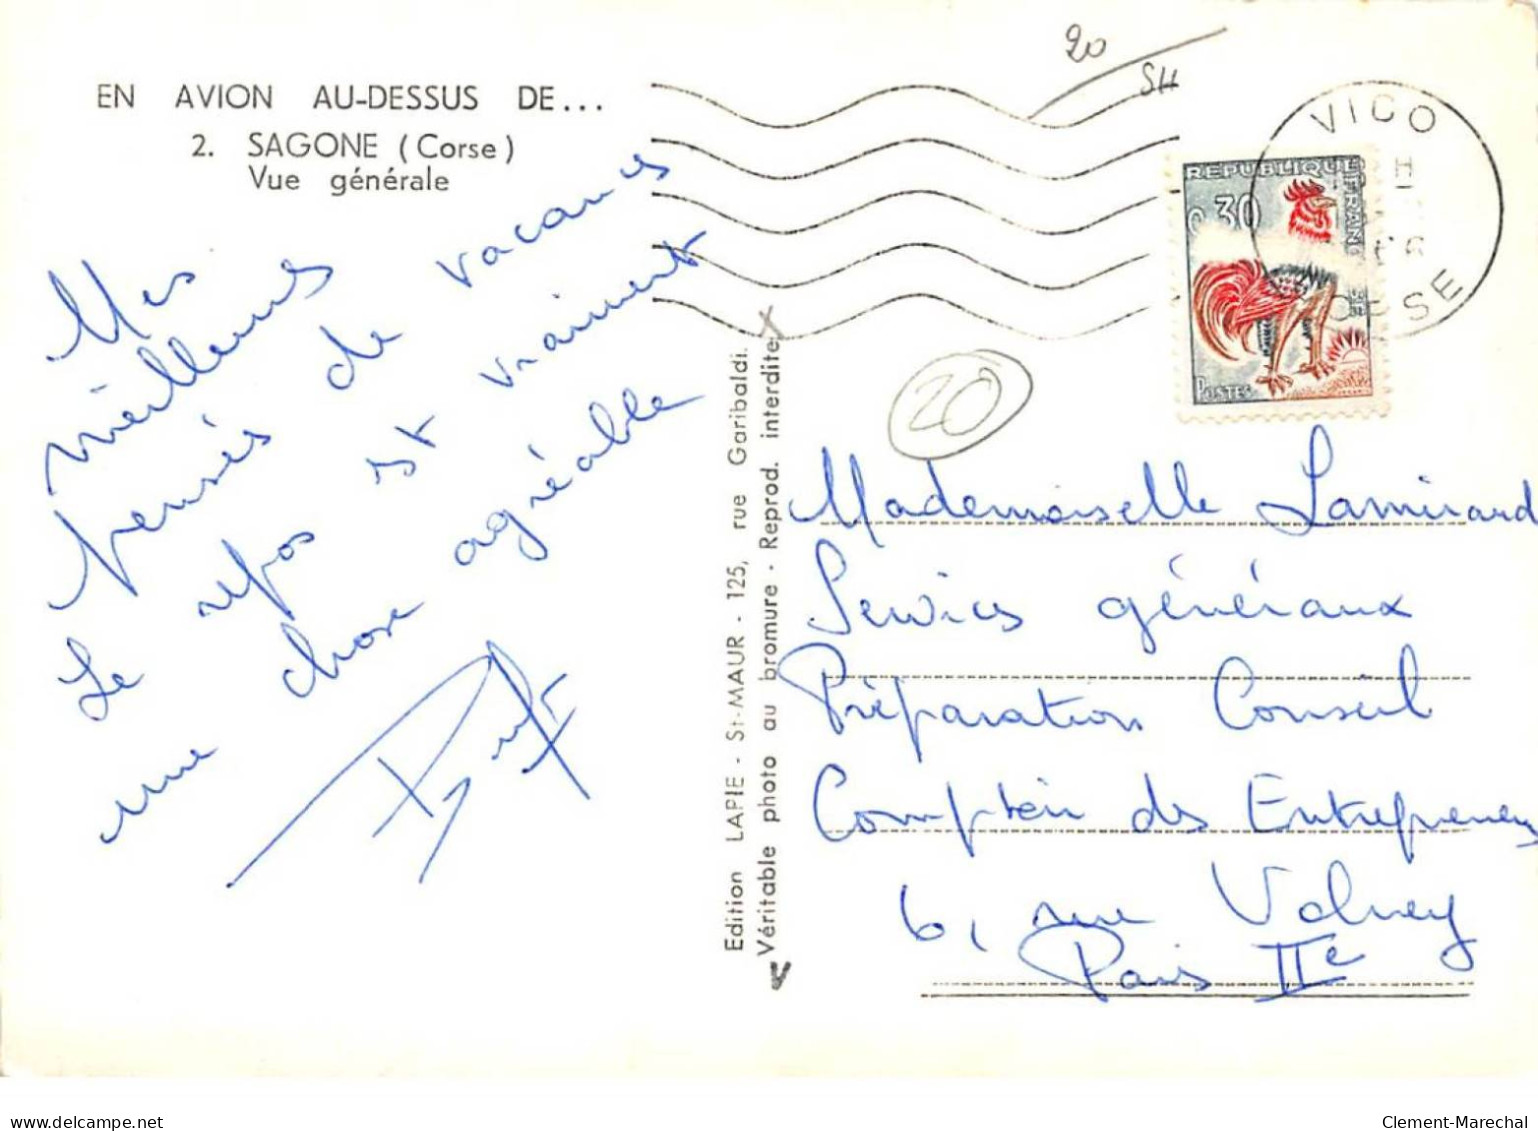 EN AVION AU-DESSUS DE...
2. SAGONE (Corse)
Vue générale
Mes
meilleures
pensées de vacances
Le repos est vraiment
une chose agréable
Edition LAPIE - St-MAUR - 125, rue Garibaldi.
Véritable photo au bromure - Reprod. interdite
20
SH
VICO
CORSE
REPUBLIQUE FRANCAISE
0,30
POSTES
20
Mademoiselle Lamirand
Services généraux
Préparation Conseil
Comptoir des Entrepreneurs
6, rue Volney
Paris IIe
Clement-Marechal
delcampe.net